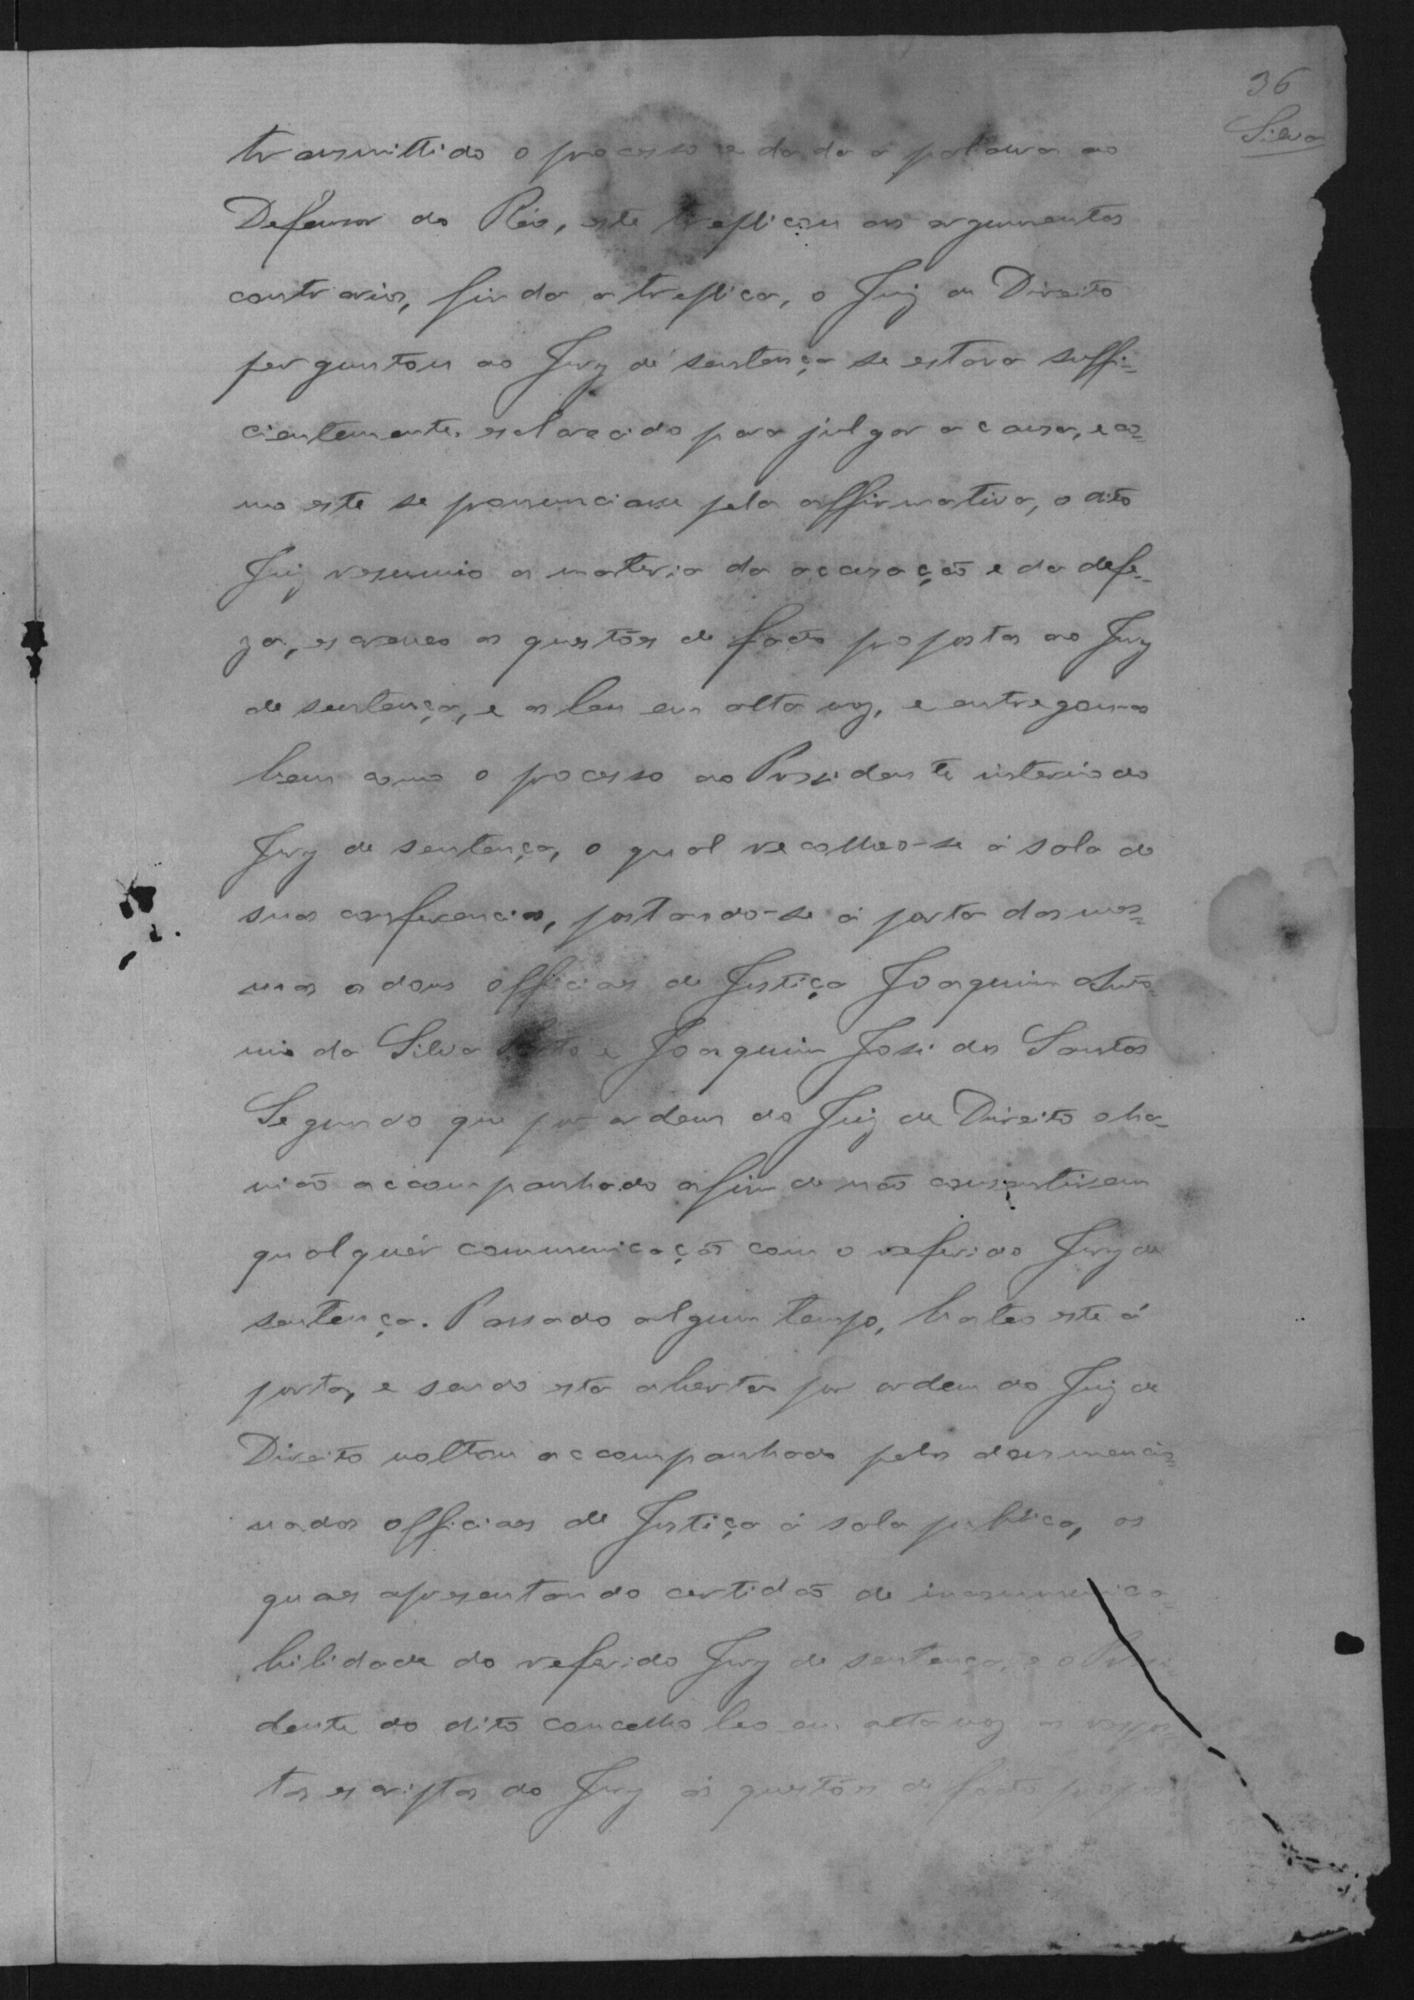 36
Silva
transmittido o processo e dando a palavra ao
Defensor do Réo, este treplicou os argumentos
contrarios, finda a treplica, o Juiz de Direito
perguntou ao Jury de sentença se estava suffi=
cientemente esclarecido para julgar a causa, e co=
mo este se pronunciasse pela affirmativa, o dito
Juiz resumio a materia da accusação e da defe=
za, escreveo as questões de facto propostas ao Jury
de sentença, e as leu em alta voz, e entregou-as
bem como o processo ao Presidente interino do
Jury de sentença, o qual recolheo-se á sala de
suas conferencias, postando-se á porta das mes=
mas os dous officiaes de Justiça Joaquim Anto=
nio da Silva e Joaquim José dos Santos
Segundo que por ordem do Juiz de Direito o ha=
vião accompanhado afim de não consentirem
qualquér communicação com o referido Jury de
sentença. Passado algum tempo, bateo este á
porta, e sendo esta aberta por ordem do Juiz de
Direito voltou accompanhado pelos dous mencio=
nados officiaes de Justiça á sala publica, os
quaes apresentando certidão de incommunica=
bilidade do referido Jury de sentença, e o Presi
dente do dito concelho leo em alta voz as respos=
tas escriptas do Jury ás questões de facto propos